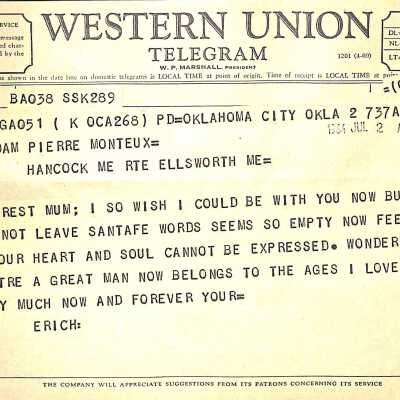 SERVICE
message
ed char-
d by the
WESTERN UNION
TELEGRAM
W. P. MARSHALL, PRESIDENT
1201 (4-60)
DL=
NL=
LT=
e shown in the date line on domestic telegrams is LOCAL TIME at point of origin. Time of receipt is LOCAL TIME at point of destination
BA038 SSK289
GA051 ( K OCA268) PD=OKLAHOMA CITY OKLA 2 737A
1964 JUL 2
DAM PIERRE MONTEUX=
HANCOCK ME RTE ELLSWORTH ME=
REST MUM; I SO WISH I COULD BE WITH YOU NOW BU
NOT LEAVE SANTAFE WORDS SEEMS SO EMPTY NOW FEE
OUR HEART AND SOUL CANNOT BE EXPRESSED. WONDER
TRE A GREAT MAN NOW BELONGS TO THE AGES I LOVE
Y MUCH NOW AND FOREVER YOUR=
ERICH:
THE COMPANY WILL APPRECIATE SUGGESTIONS FROM ITS PATRONS CONCERNING ITS SERVICE